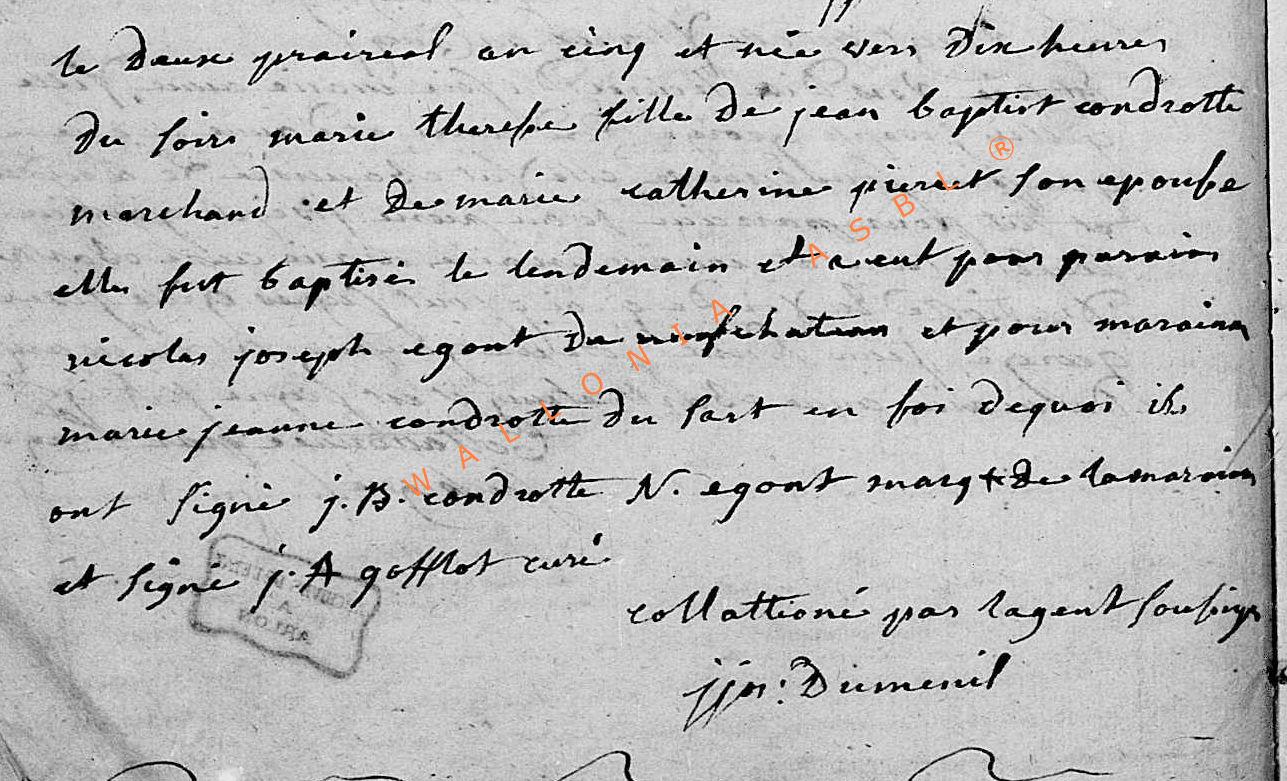 le deux praireal an cinq et née vers dix heures
du soire marie therese fille de jean baptist condrotte
marchand et de marie catherine pierret son epouse
elle fut baptisée le lendemain et a eut pour parain
nicolas joseph egont du neufchateau et pour maraine
marie jeanne condrotte du sart en foi dequoi ils
ont signé j. B. condrotte N. egont marq + de la maraine
et signé j. A gofflot curé
collationé par lagent sousigné
jjos: Dumenil
WALLONIA ASBL ®
ARLON